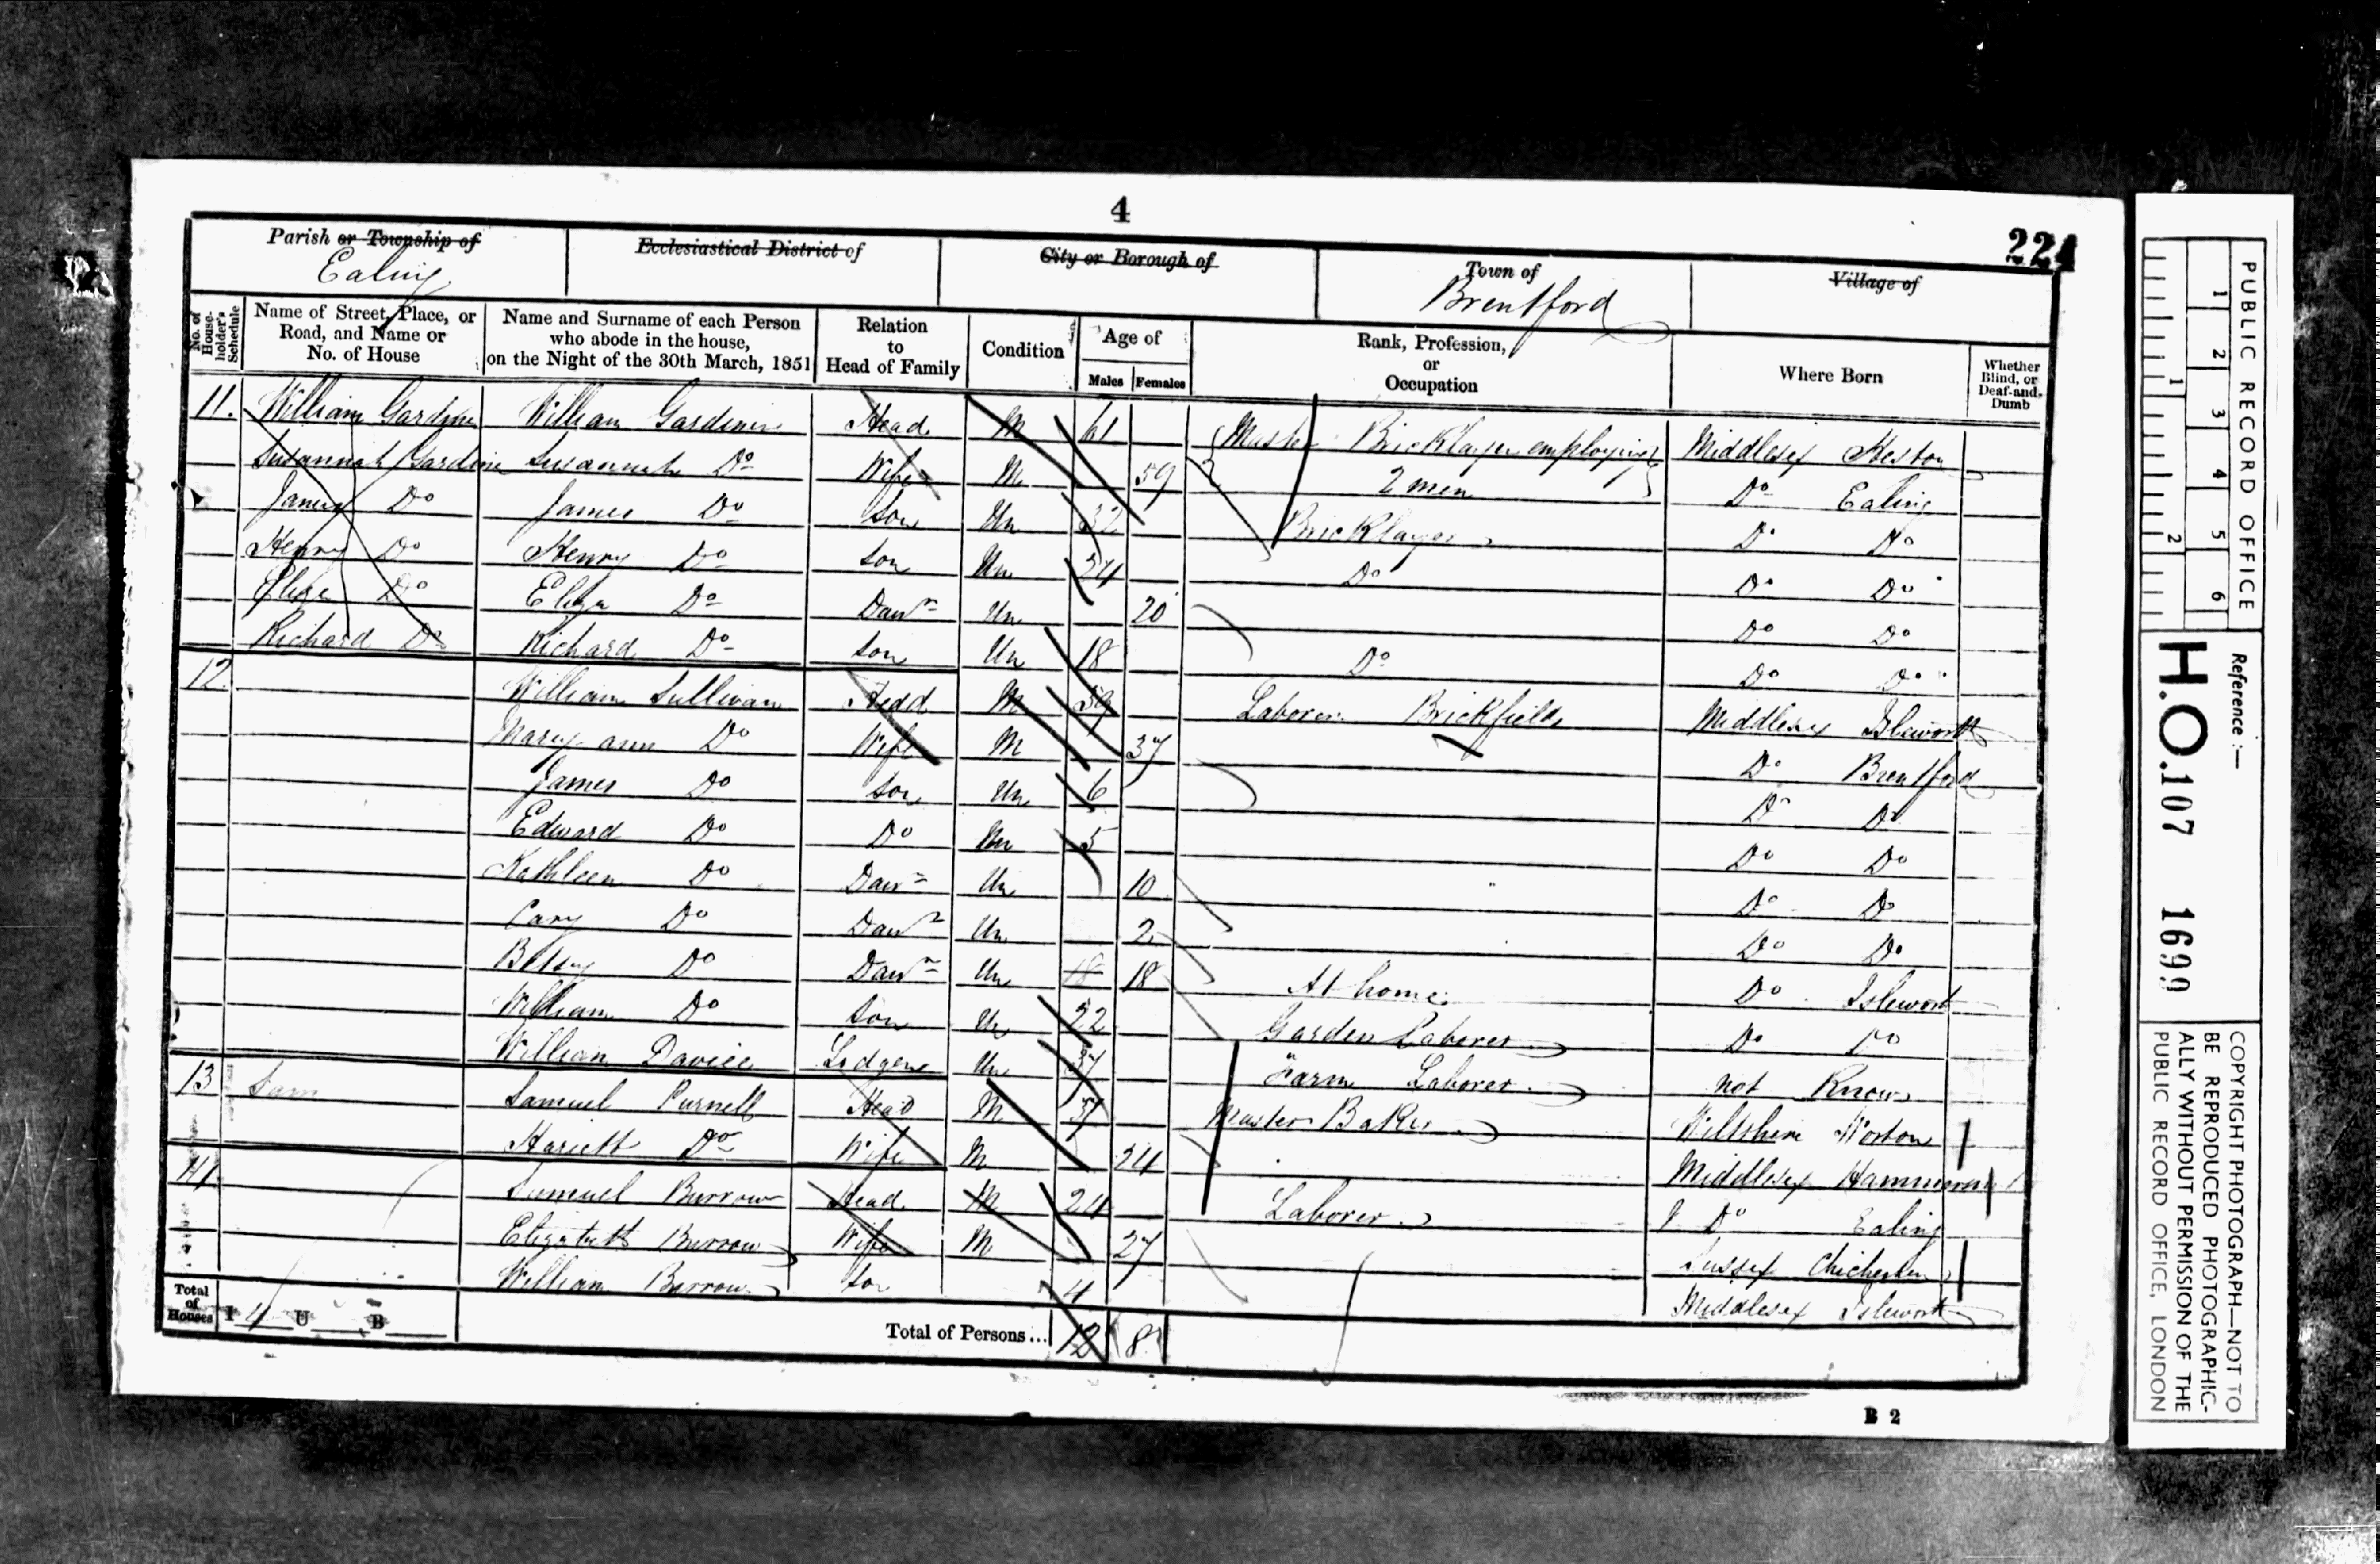 4
224
Parish or Township of Ecclesiastical District of City or Borough of Town of Village of
Ealing Brentford
No. of House-holder's Schedule Name of Street, Place, or Road, and Name or No. of House Name and Surname of each Person who abode in the house, on the Night of the 30th March, 1851 Relation to Head of Family Condition Age of Males Females Rank, Profession, or Occupation Where Born Whether Blind, or Deaf-and-Dumb
11. William Gardiner William Gardiner Head M 61 Master Bricklayer employing Middlesex Heston
Susannah Gardine Susannah Do Wife M 59 2 men Do Ealing
James Do James Do Son Un 32 Bricklayer Do Do
Henry Do Henry Do Son Un 24 Do Do Do
Eliza Do Eliza Do Daur Un 20 Do Do
Richard Do Richard Do Son Un 18 Do Do Do
12 William Sullivan Head M 39 Laborer Brickfields Middlesex Isleworth
Mary ann Do Wife M 37 Do Brentford
James Do Son Un 6 Do Do
Edward Do Do Un 5 Do Do
Kathleen Do Daur Un 10 Do Do
Do Daur Un 2 Do Do
Betsy Do Daur Un 18 18 At home Do Isleworth
William Do Son Un 22 Garden Laborer Do Do
William Lodger Un 37 Farm Laborer not Known
13 Sam Samuel Purnell Head M Master Baker Wiltshire
Hariett Do Wife M 24 Middlesex
Samuel Burrow Head M 24 Laborer Do Ealing
Elizabeth Burrow Wife M 27 Sussex Chichester
William Burrow Son 4 Middlesex Isleworth
Total of Houses I 4 U B Total of Persons... 12 8
B 2
PUBLIC RECORD OFFICE
1 2 3 4 5 6
1 2
Reference :—
H.O. 107 1699
COPYRIGHT PHOTOGRAPH—NOT TO
BE REPRODUCED PHOTOGRAPHIC-
ALLY WITHOUT PERMISSION OF THE
PUBLIC RECORD OFFICE, LONDON